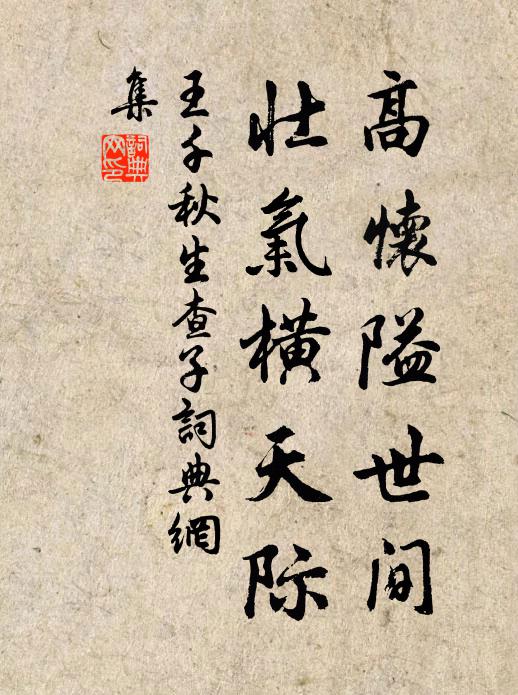 高懷隘世间
壮氣横天际
王千秋生查子詞典網
集
詞典
网印